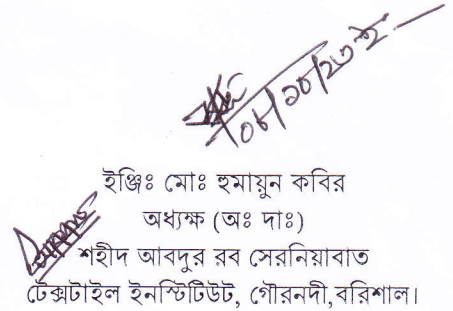 ০৮/১০/২৩ ইং
ইঞ্জিঃ মোঃ হুমায়ুন কবির
অধ্যক্ষ (অঃ দাঃ)
শহীদ আবদুর রব সেরনিয়াবাত
টেক্সটাইল ইনস্টিটিউট, গৌরনদী,বরিশাল।